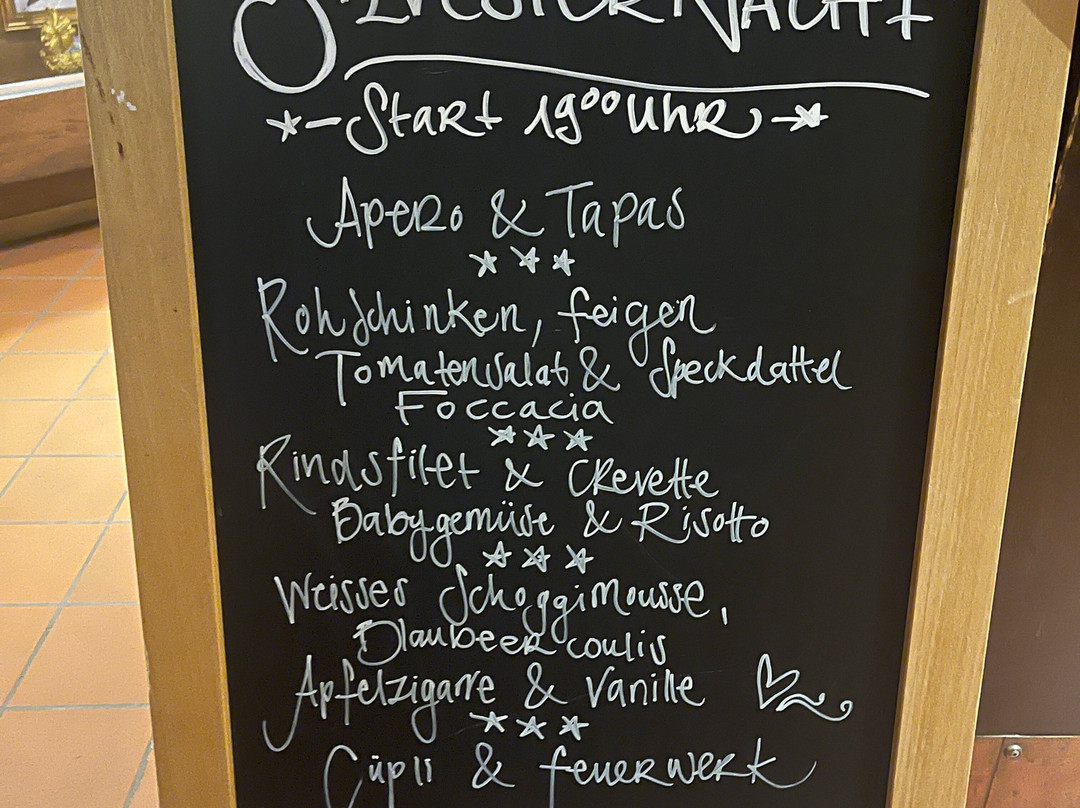 Silvesternacht
*-Start 19⁰⁰ Uhr-*
Apero & Tapas
* * *
Rohschinken, feigen
Tomatensalat & Speckdattel
Foccacia
* * *
Rindsfilet & Crevette
Babygemüse & Risotto
* * *
Weisses Schoggimousse,
Blaubeer coulis
Apfelzigarre & Vanille
* * *
Cüpli & feuerwerk